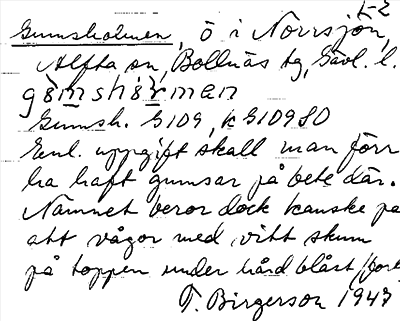 L-2
Gumsholmen, ö i Norrsjön,
Alfta sn, Bollnäs tg, Gävl. l.
Gumsh. G109, k G109 SO
Enl. uppgift skall man förr
ha haft gumsar på bete där.
Namnet beror dock kanske på
att vågor med vitt skum
på toppen under hård blåst
T. Birgerson 1943